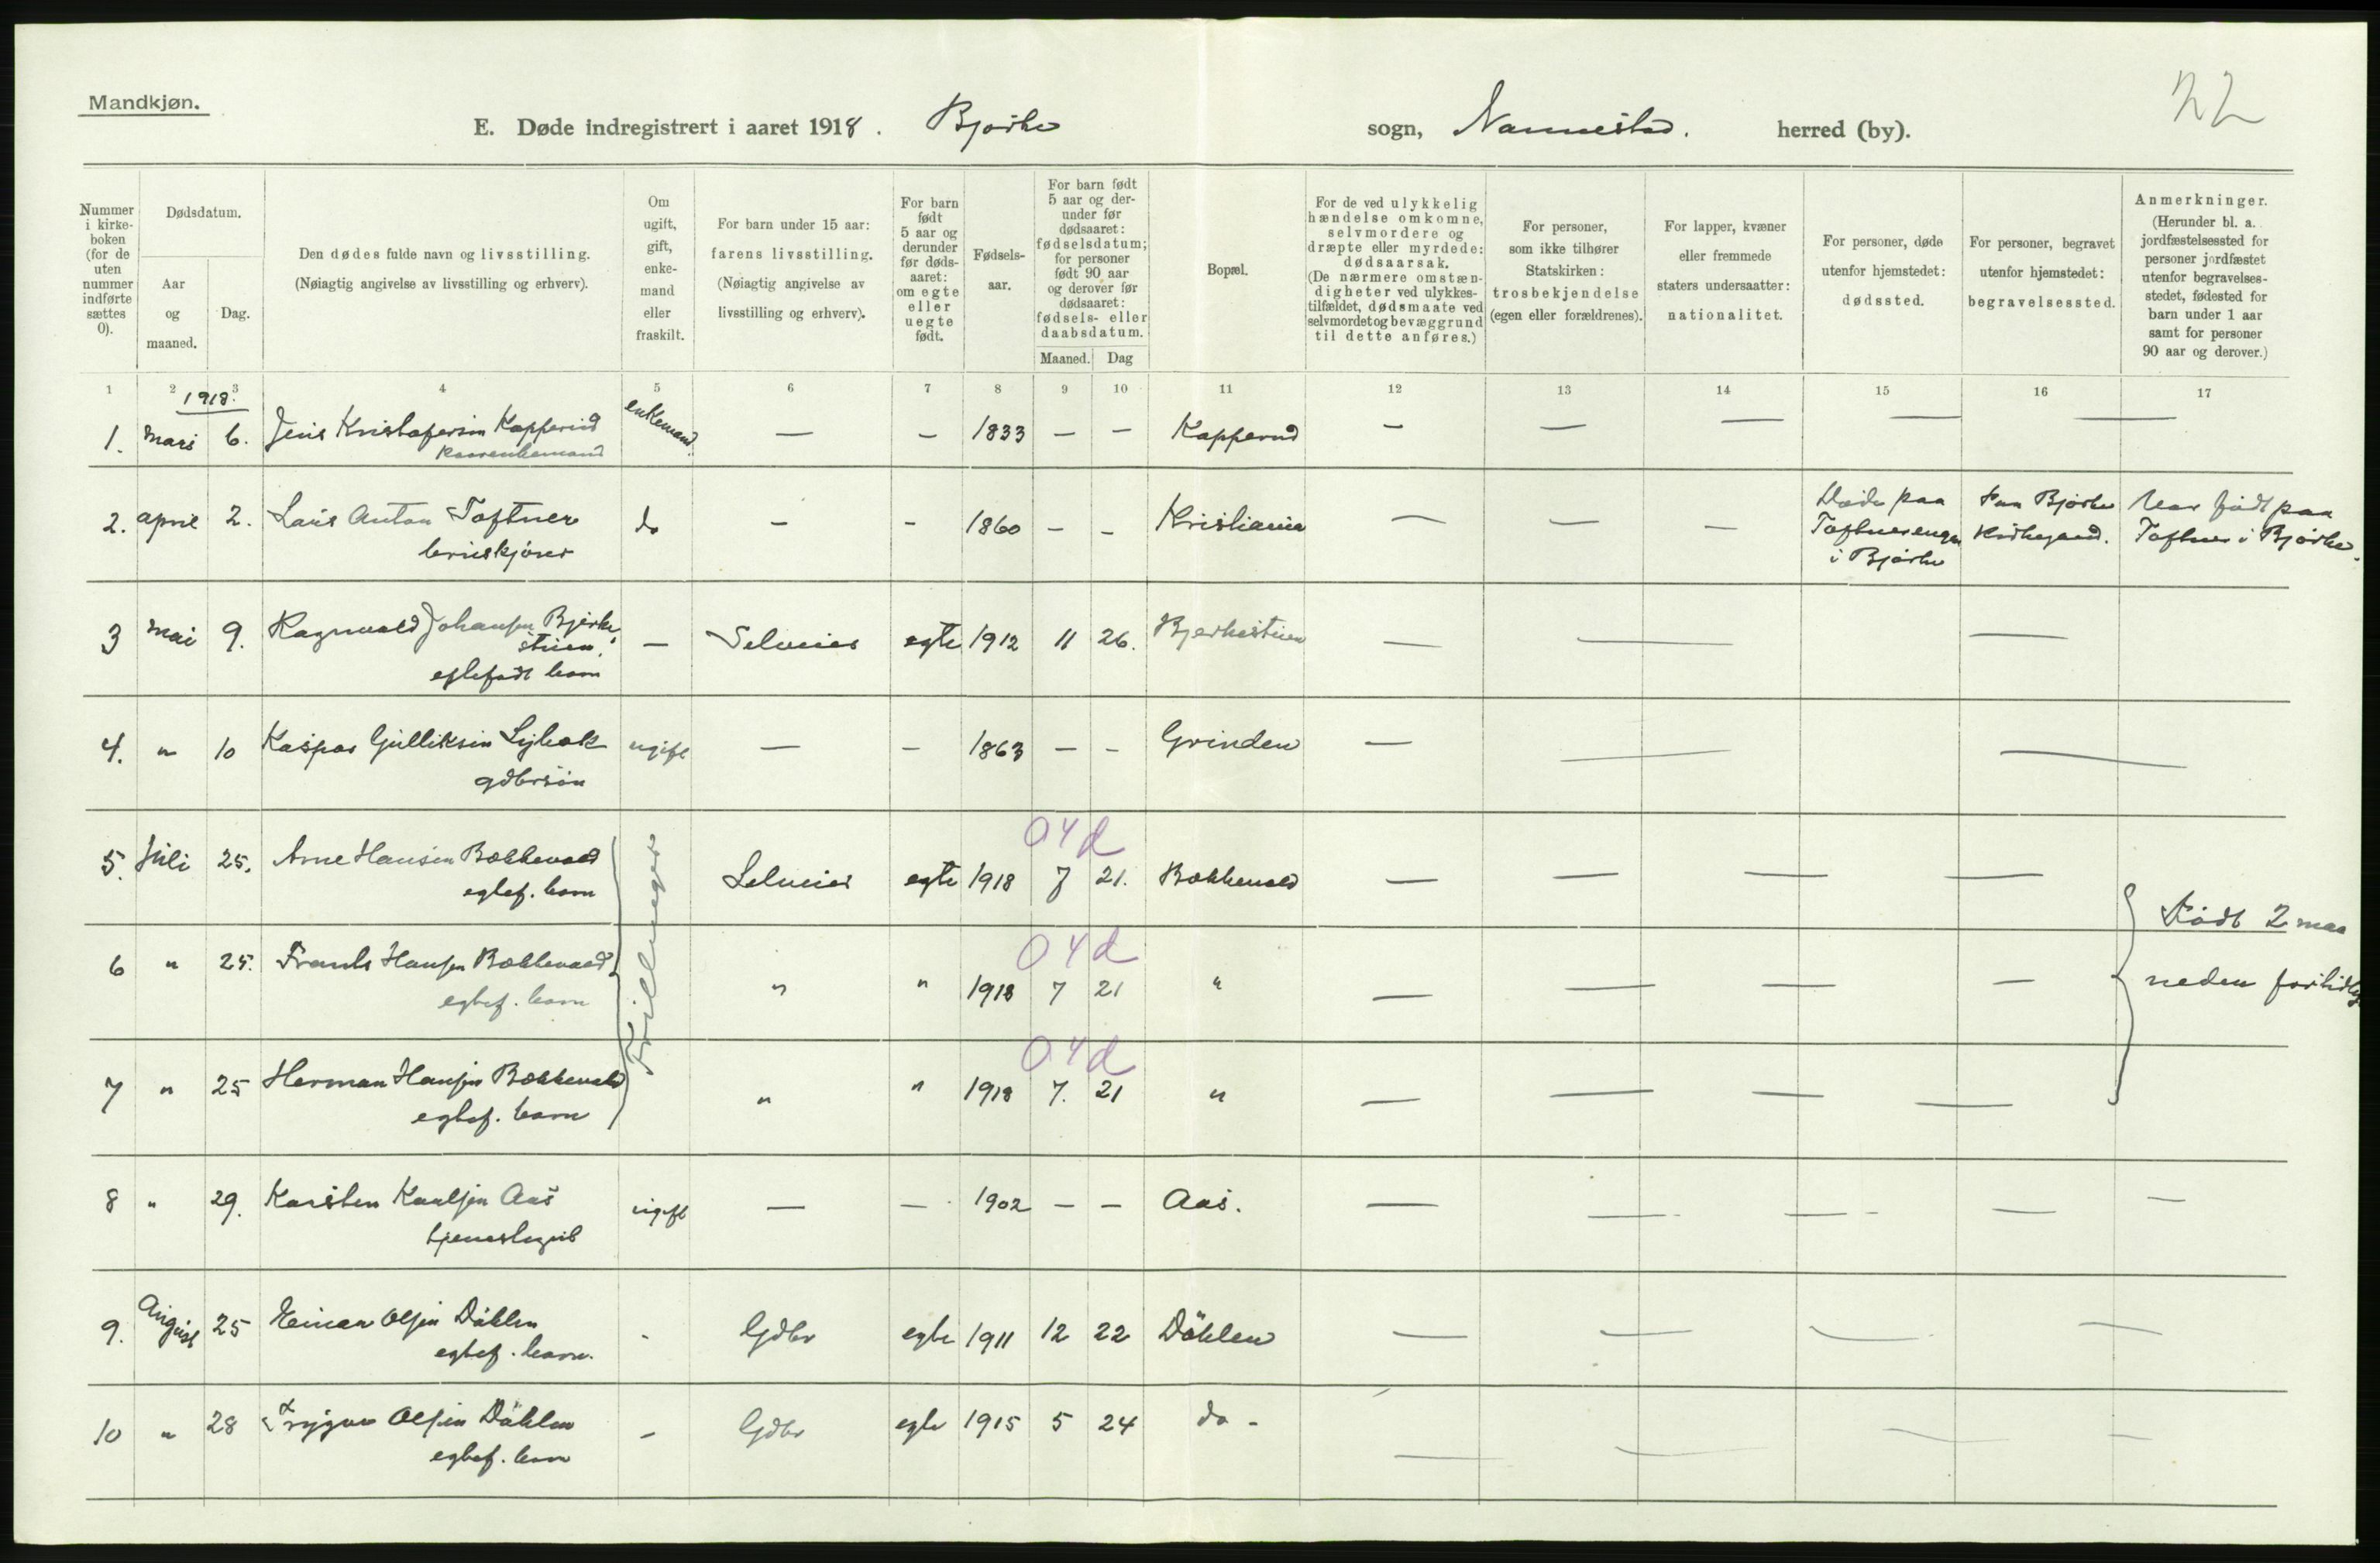 Mandkjøn.
E. Døde indregistrert i aaret 1918. Bjørke sogn, Nannestad. herred (by).
22
Nummer i kirkeboken (for de uten nummer indførte sættes 0).
Dødsdatum.
Aar og maaned.
Dag.
Den dødes fulde navn og livsstilling.
(Nøiagtig angivelse av livsstilling og erhverv).
Om ugift, gift, enkemand eller fraskilt.
For barn under 15 aar:
farens livsstilling.
(Nøiagtig angivelse av livsstilling og erhverv).
For barn født 5 aar og derunder før dødsaaret: om egte eller uegte født.
Fødselsaar.
For barn født 5 aar og derunder før dødsaaret: fødselsdatum; for personer født 90 aar og derover før dødsaaret: fødsels- eller daabsdatum.
Maaned.
Dag
Bopæl.
For de ved ulykkelig hændelse omkomne, selvmordere og dræpte eller myrdede: dødsaarsak.
(De nærmere omstændigheter ved ulykkestilfældet, dødsmaate ved selvmordet og bevæggrund til dette anføres.)
For personer, som ikke tilhører Statskirken: trosbekjendelse (egen eller forældrenes).
For lapper, kvæner eller fremmede staters undersaatter: nationalitet.
For personer, døde utenfor hjemstedet: dødssted.
For personer, begravet utenfor hjemstedet: begravelsessted.
Anmerkninger.
(Herunder bl. a. jordfæstelsessted for personer jordfæstet utenfor begravelsesstedet, fødested for barn under 1 aar samt for personer 90 aar og derover.)
1 2 3 4 5 6 7 8 9 10 11 12 13 14 15 16 17
1918.
1. Mars 6. Jens Kristofersen Kapperud enkemand. — — 1833 — — Kapperud — — — — —
2. april 2. Lars Anton Toftner do — — 1860 — — Kristiania — — — Døde paa Paa Bjørke Var født paa
Toftnerengen Kirkegaard. Toftner i Bjørke.
i Bjørke
3 Mai 9. Ragnvald Johansen Bjerke — Selveier egte 1912 11 26. Bjerkestuen — — —
stuen.
egtefødt barn
4. " 10 Kaspar Gulliksen Lybæk ugift — — 1863 — — Grinden — — —
gdbrsøn
Trillinger
5. Juli 25. Arne Hansen Bækkevold Selveier egte 1918 7 21. Bækkevold — — — —
04d
egtef. barn
Født 2 maa
neden fortidlig
6 " 25. Frants Hansen Bækkevold " " 1918 7 21 " — — — —
04d
egtef. barn
7 " 25 Herman Hansen Bækkevold " " 1918 7. 21 " — — — —
04d
egtef. barn
8 " 29. Karsten Aas ugift — — 1902 — — Aas. — — — — —
tjenestegut
9. August 25 Einar Olsen Dählen - Gdbr egte 1911 12 22 Dählen — — — —
egtef. barn.
10 " 28 Trygve Olsen Dählen - Gdbr egte 1915 5 24 do - — — — —
egtef. barn